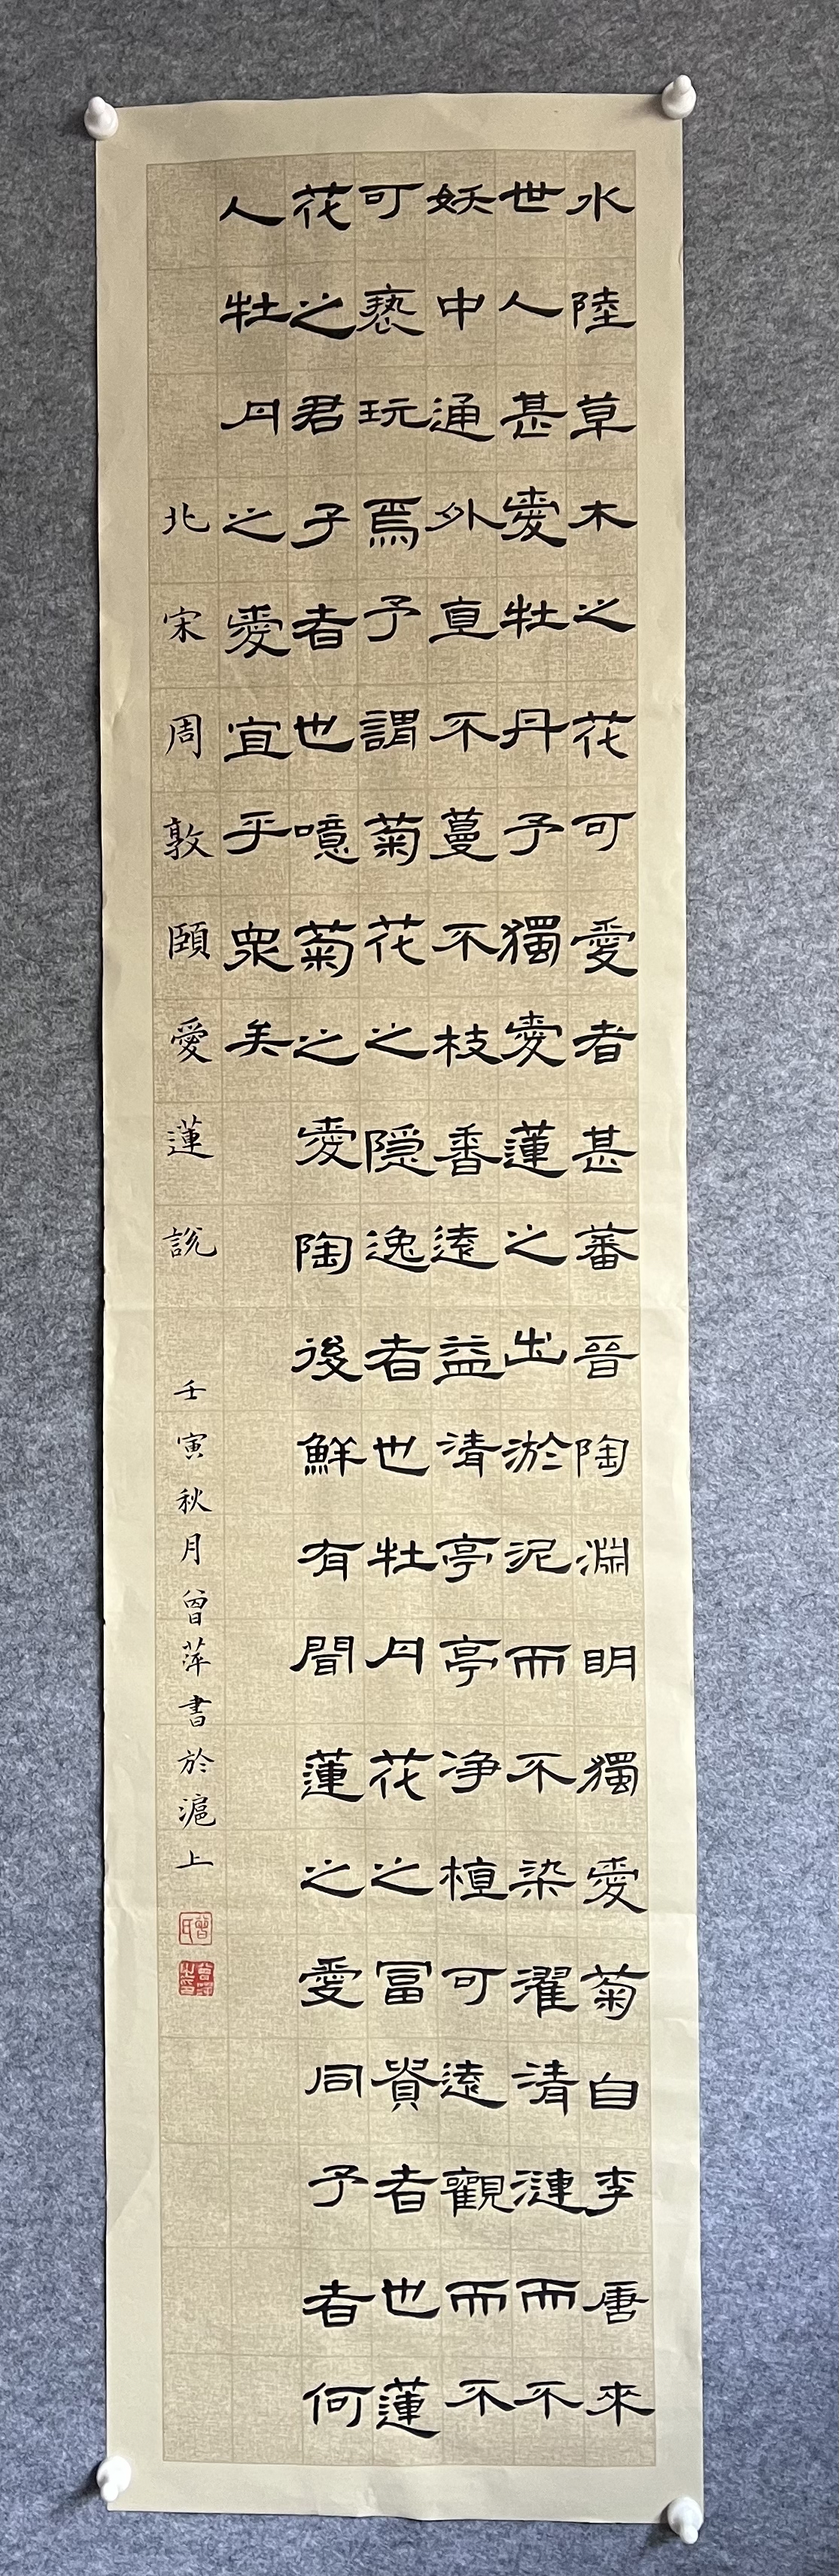 水陸草木之花可愛者甚蕃晉陶淵明獨愛菊自李唐來
世人甚愛牡丹予獨愛蓮之出淤泥而不染濯清漣而不
妖中通外直不蔓不枝香遠益清亭亭净植可遠觀而不
可褻玩焉予謂菊花之隱逸者也牡丹花之冨貴者也蓮
花之君子者也噫菊之愛陶後鮮有聞蓮之愛同予者何
人牡丹之愛宜乎衆矣
北宋周敦頤愛蓮說
壬寅秋月曾萍書於滬上
曾氏